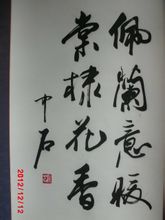 佩蘭意暖
棠棣花香
中石
2012/12/12